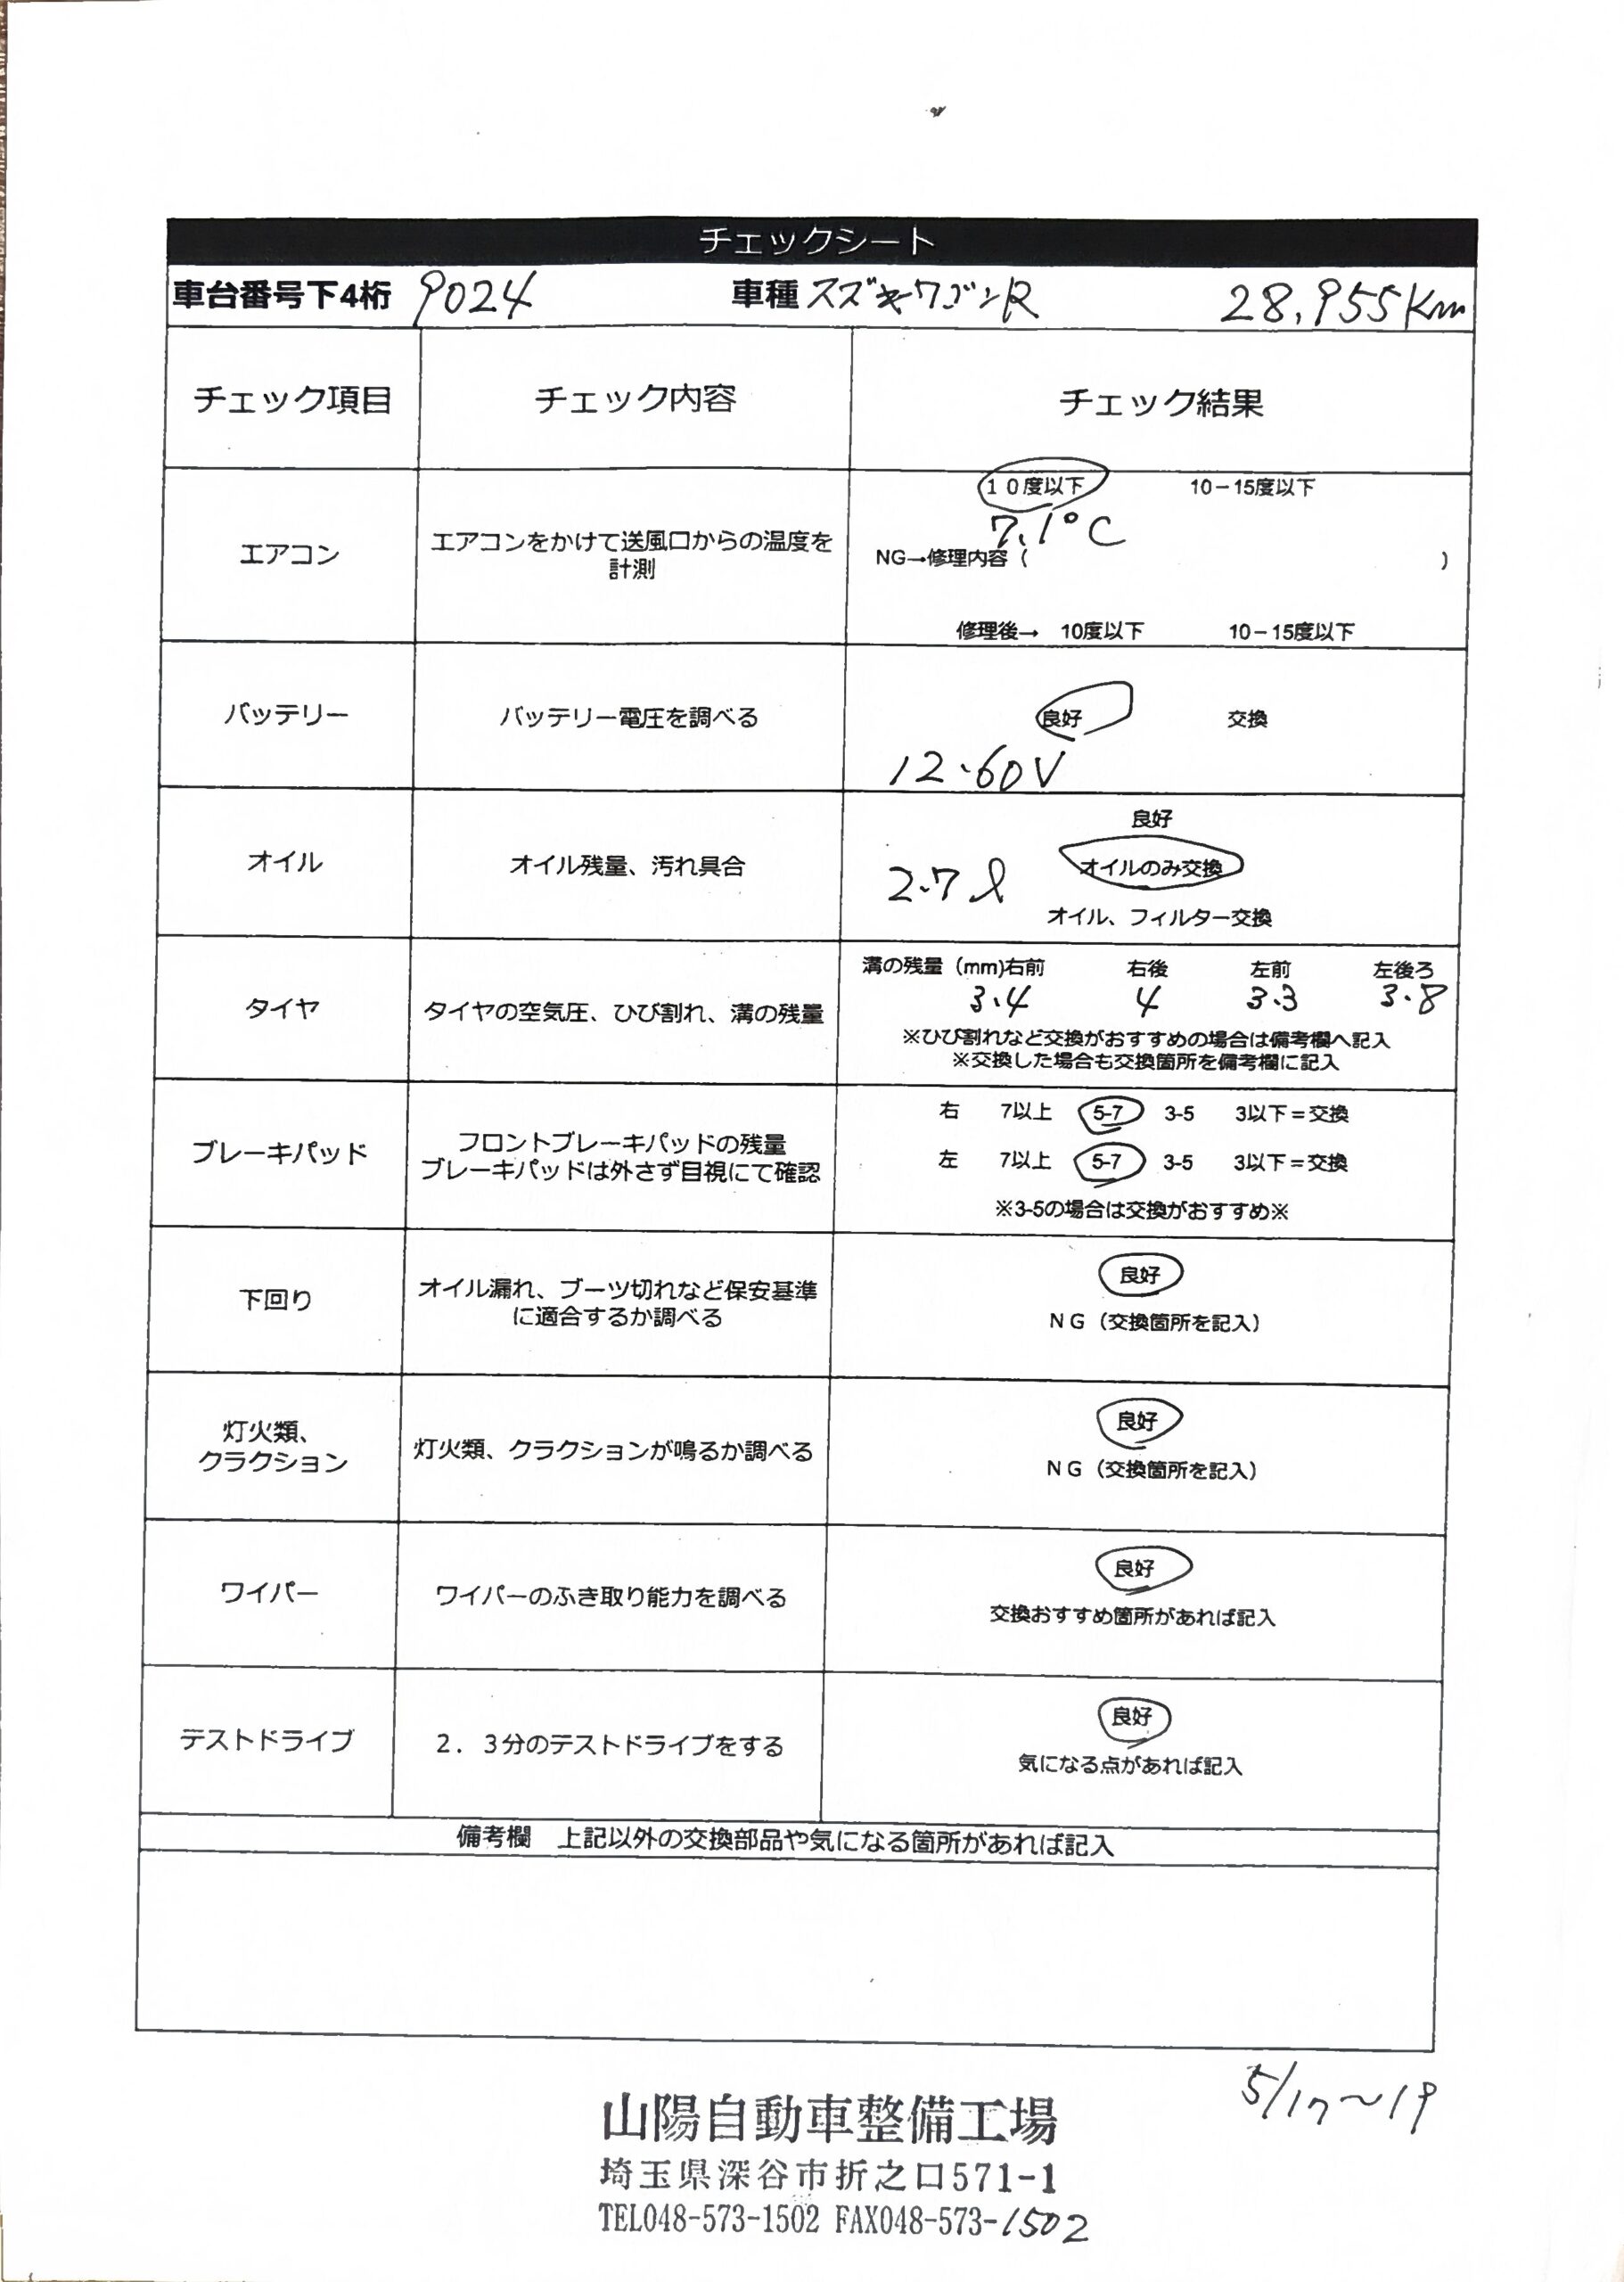 チェックシート
車台番号下4桁 9024 車種 スズキワゴンR 28,955Km
チェック項目 チェック内容 チェック結果
エアコン
エアコンをかけて送風口からの温度を
計測
10度以下 10－15度以下
7.1°C
NG→修理内容（ ）
修理後→ 10度以下 10－15度以下
バッテリー
バッテリー電圧を調べる
良好 交換
12.60V
オイル
オイル残量、汚れ具合
良好
2.7ℓ オイルのみ交換
オイル、フィルター交換
タイヤ
タイヤの空気圧、ひび割れ、溝の残量
溝の残量（mm)右前 右後 左前 左後ろ
3.4 4 3.3 3.8
※ひび割れなど交換がおすすめの場合は備考欄へ記入
※交換した場合も交換箇所を備考欄に記入
ブレーキパッド
フロントブレーキパッドの残量
ブレーキパッドは外さず目視にて確認
右 7以上 5-7 3-5 3以下＝交換
左 7以上 5-7 3-5 3以下＝交換
※3-5の場合は交換がおすすめ※
下回り
オイル漏れ、ブーツ切れなど保安基準
に適合するか調べる
良好
NG（交換箇所を記入）
灯火類、
クラクション
灯火類、クラクションが鳴るか調べる
良好
NG（交換箇所を記入）
ワイパー
ワイパーのふき取り能力を調べる
良好
交換おすすめ箇所があれば記入
テストドライブ
2．3分のテストドライブをする
良好
気になる点があれば記入
備考欄 上記以外の交換部品や気になる箇所があれば記入
5/17～19
山陽自動車整備工場
埼玉県深谷市折之口571-1
TEL048-573-1502 FAX048-573-1502